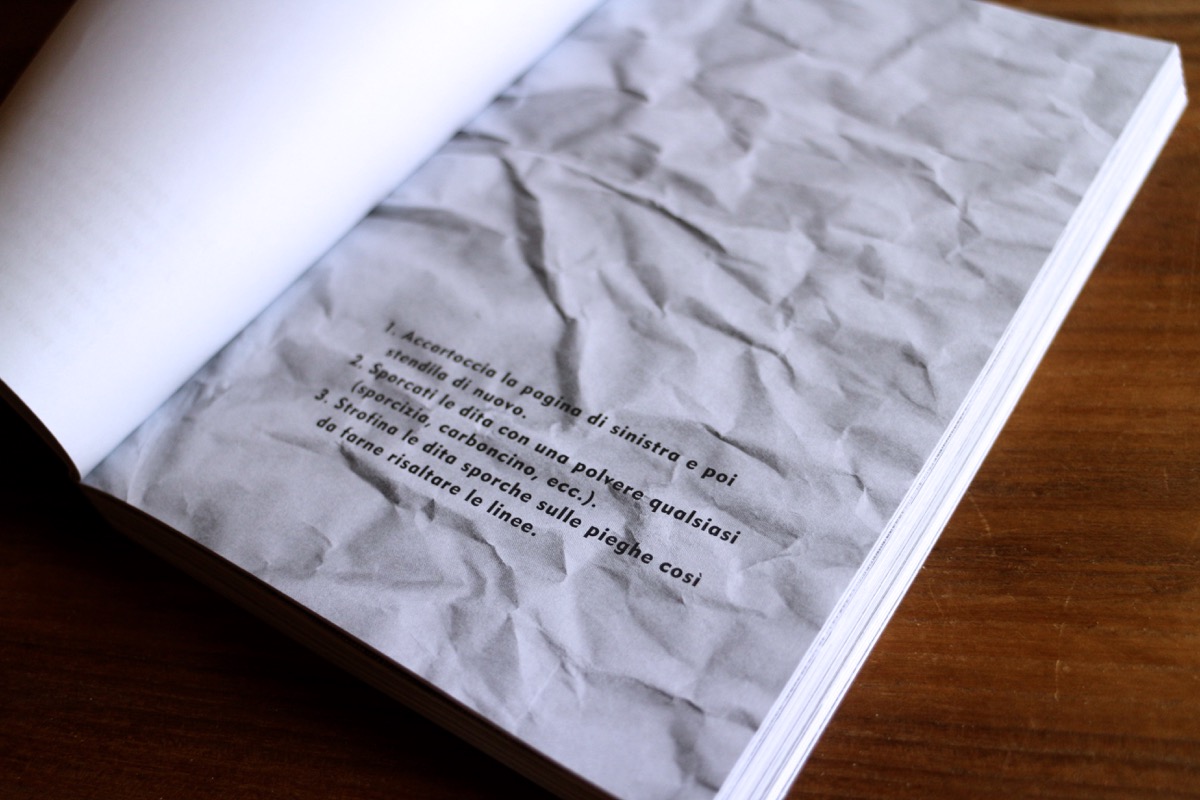 1. Accartoccia la pagina di sinistra e poi
stendila di nuovo.
2. Sporcati le dita con una polvere qualsiasi
(sporcizia, carboncino, ecc.).
3. Strofina le dita sporche sulle pieghe così
da farne risaltare le linee.